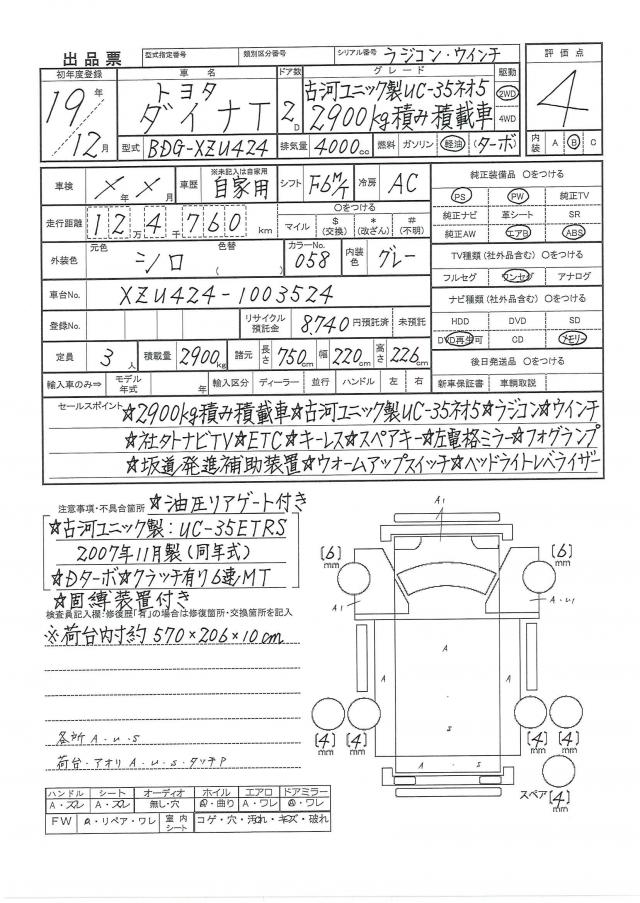 出品票 型式指定番号 類別区分番号 シリアル番号 ラジコン・ウインチ
初年度登録 車名 ドア数 グレード 駆動 評価点
19年 トヨタ 2D 古河ユニック製UC-35ネオ5 2WD 4
12月 ダイナT 2900kg積み積載車 4WD
型式 BDG-XZU424 排気量 4000cc 燃料 ガソリン 軽油 (ターボ) 内装 A B C
車検 ×年×月 車歴 ※未記入は自家用 自家用 シフト F6M/T 冷房 AC 純正装備品 〇をつける
PS PW 純正TV
走行距離 12万4千760km 〇をつける マイル $(交換) *(改ざん) #(不明) 純正ナビ 革シート SR
純正AW エアB ABS
外装色 元色 シロ 色替 ( ) カラーNo. 058 内装色 グレー TV種類(社外品含む) 〇をつける
フルセグ ワンセグ アナログ
車台No. XZU424-1003524 ナビ種類(社外品含む) 〇をつける
登録No. リサイクル預託金 8,740円預託済 未預託 HDD DVD SD
DVD再生可 CD メモリー
定員 3人 積載量 2900kg 諸元 長さ 750cm 幅 220cm 高さ 226cm 後日発送品 〇をつける
輸入車のみ⇒ モデル年式 年 輸入区分 ディーラー 並行 ハンドル 左 右 新車保証書 車輌取説
セールスポイント ☆2900kg積み積載車☆古河ユニック製UC-35ネオ5☆ラジコン☆ウインチ
☆社外ナビTV☆ETC☆キーレス☆スペアキー☆左電格ミラー☆フォグランプ
☆坂道発進補助装置☆ウォームアップスイッチ☆ヘッドライトレベライザー
注意事項・不具合箇所 ☆油圧リアゲート付き
☆古河ユニック製:UC-35ETRS
2007年11月製(同年式)
☆Dターボ☆クラッチ有り6速MT
☆固縛装置付き
検査員記入欄:修復歴「有」の場合は修復箇所・交換箇所を記入
※荷台内寸約570×206×10cm
各所A.U.S
荷台・アオリA.U.S.タッチP
A1
[6]mm [6]mm
A1 A.U1
A
A A
S
[4]mm [4]mm [4]mm [4]mm
A . S
スペア[4]mm
ハンドル シート オーディオ ホイル エアロ ドアミラー
A・スレ A・スレ 無し・穴 A・曲り A・ワレ A・ワレ
FW A・リペア・ワレ 室内シート コゲ・穴・汚れ・キズ・破れ